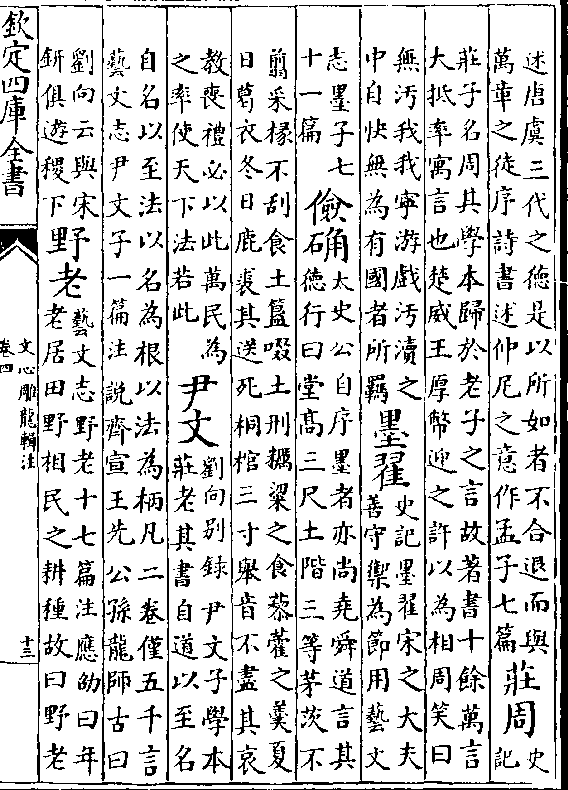 述唐虞三代之德是以所如者不合退而與
萬章之徒序詩書述仲尼之意作孟子七篇
莊周
史
記
莊子名周其學本歸於老子之言故著書十餘萬言
大抵率寓言也楚威王厚幣迎之許以為相周笑曰
無汚我我寧游戲汚瀆之
中自快無為有國者所羈
墨翟
史記墨翟宋之大夫
善守禦為節用藝文
志墨子七
十一篇
儉确
太史公自序墨者亦尚堯舜道言其
德行曰堂髙三尺土階三等茅茨不
翦采椽不刮食土簋啜土刑糲粱之食藜藿之羮夏
日葛衣冬日鹿裘其送死桐棺三寸舉音不盡其哀
教喪禮必以此萬民為
之率使天下法若此
尹文
劉向别録尹文子學本
莊老其書自道以至名
自名以至法以名為根以法為柄凡二卷僅五千言
藝文志尹文子一篇注說齊宣王先公孫龍師古曰
劉向云與宋
鈃俱遊稷下
野老
藝文志野老十七篇注應劭曰年
老居田野相民之耕種故曰野老
欽定四庫全書
文心雕龍輯注
卷四
十三